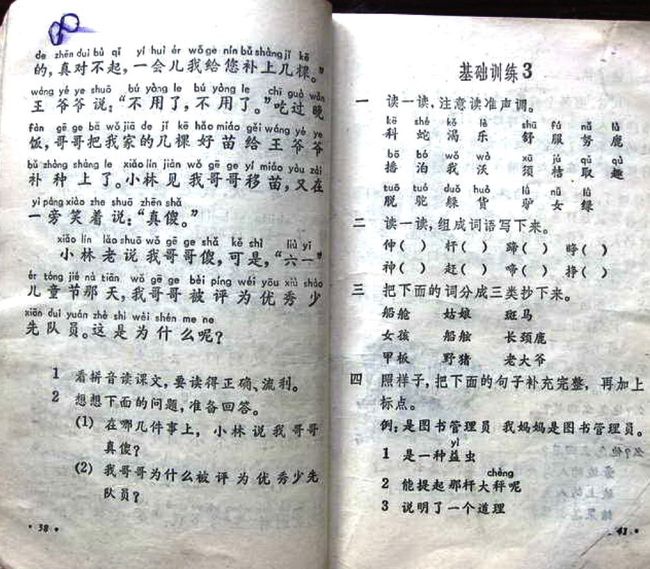 de zhēn duì bù qǐ yí huì ér wǒ gě nín bǔ shàng jǐ kē
的，真对不起，一会儿我给您补上几棵。”
wáng yé ye shuō bú yòng le bú yòng le chī guò wǎn
王爷爷说：“不用了，不用了。”吃过晚
fàn gē ge bǎ wǒ jiā de jǐ kē hǎo miáo gěi wáng yé ye
饭，哥哥把我家的几棵好苗给王爷爷
bǔ zhòng shàng le xiǎo lín jiàn wǒ gē ge yí miáo yòu zài
补种上了。小林见我哥哥移苗，又在
yì páng xiào zhe shuō zhēn shǎ
一旁笑着说：“真傻。”
xiǎo lín lǎo shuō wǒ gē ge shǎ kě shì liù yī
小林老说我哥哥傻，可是，“六一”
ér tóng jié nà tiān wǒ gē ge bèi píng wéi yōu xiù shào
儿童节那天，我哥哥被评为优秀少
xiān duì yuán zhè shì wèi shén me ne
先队员。这是为什么呢？
1 看拼音读课文，要读得正确、流利。
2 想想下面的问题，准备回答。
(1) 在哪几件事上，小林说我哥哥
真傻？
(2) 我哥哥为什么被评为优秀少先
队员？
• 38 •
基础训练3
一 读一读，注意读准声调。
kē shé kě lè shū fú nǔ lù
科 蛇 渴 乐 舒 服 努 鹿
bō bó wǒ wò xū jú qǔ qù
播 泊 我 沃 须 桔 取 趣
tuō tuó duǒ huò lǘ nǚ lǜ
脱 驼 躲 货 驴 女 绿
二 读一读，组成词语写下来。
仲( ) 杆( ) 蹄( ) 睁( )
神( ) 赶( ) 啼( ) 挣( )
三 把下面的词分成三类抄下来。
船舱 姑娘 斑马
女孩 船舷 长颈鹿
甲板 野猪 老大爷
四 照样子，把下面的句子补充完整，再加上
标点。
例：是图书管理员 我妈妈是图书管理员。
yì
1 是一种益虫
chèng
2 能提起那杆大秤呢
3 说明了一个道理
• 41 •